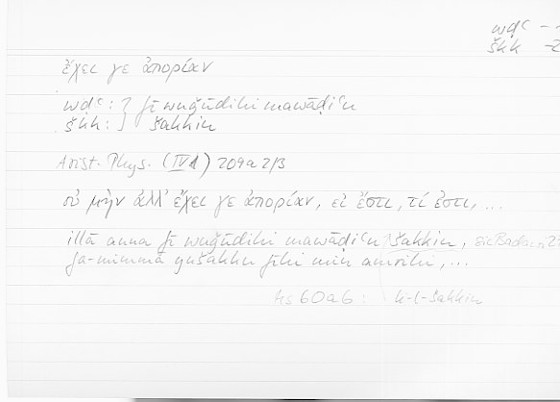 wdʿ –
škk –2
ἔχει γε ἀπορίαν
wdʿ : } fī wuǧūdihi mawāḍiʿu
škk : } šakkin
Arist. Phys. (IV 1) 209a 2/3
οὐ μὴν ἀλλ' ἔχει γε ἀπορίαν, εἰ ἔστι, τί ἐστι, ...
illā anna fī wuǧūdihi mawāḍiʿu šakkin, sic Badawī
fa-mimmā yušakku fīhi min amrihi, ...
Hs 60a6 : k-l-šakkin